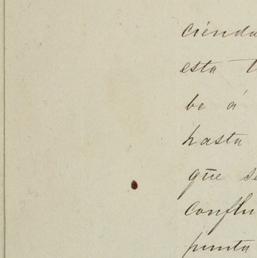 ciénda
esta t
be á
hasta
que se
conflu
punta